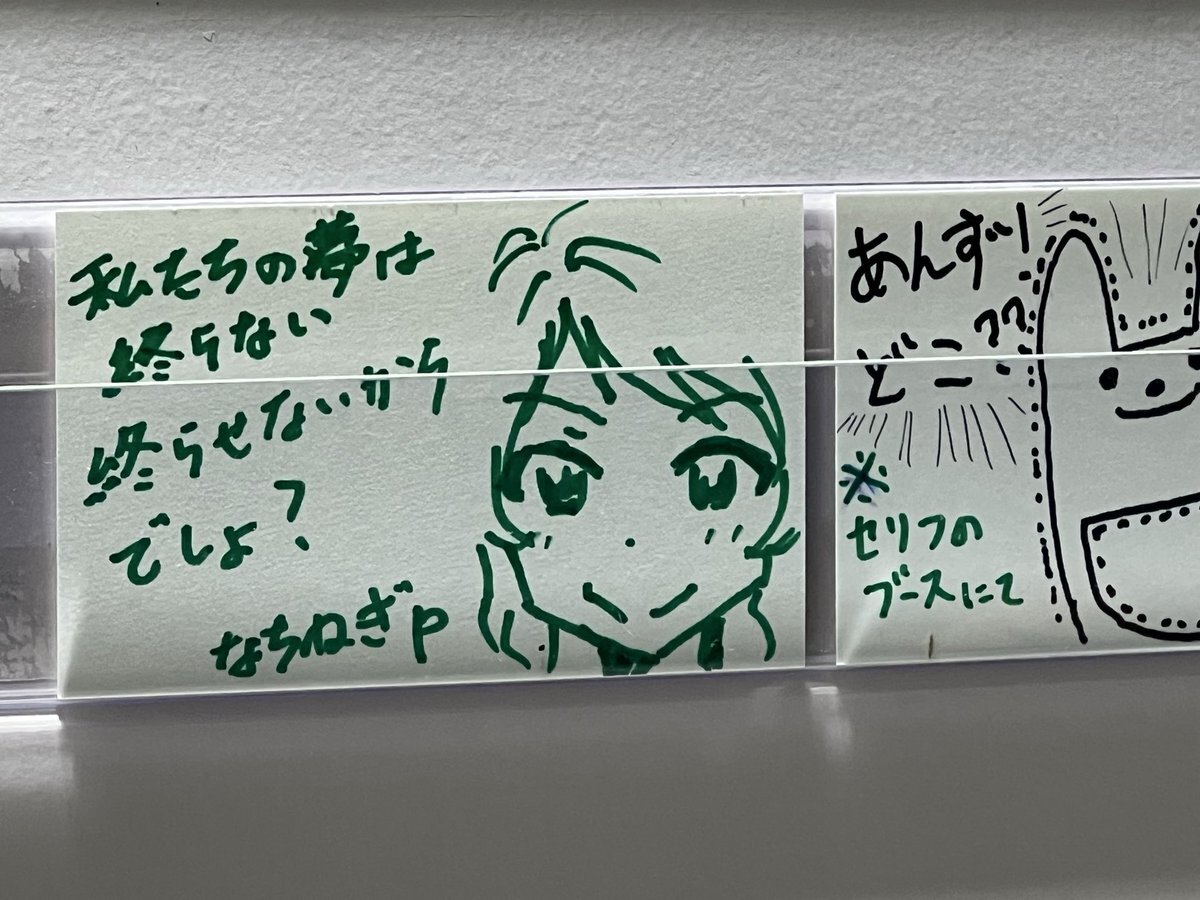 私たちの夢は
終らない
終らせないから
でしょ？
なちねぎP
あんずい
どこ??
※
セリフの
ブースにて